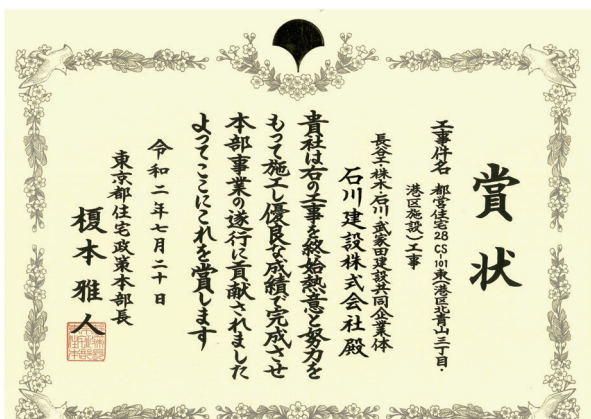 賞状
工事件名 都営住宅28CS-101東(港区北青山三丁目・
港区施設)工事
長谷工・株木・石川・武家田建設共同企業体
石川建設株式会社殿
貴社は右の工事を終始熱意と努力を
もって施工し優良な成績で完成させ
本部事業の遂行に貢献されました
よってここにこれを賞します
令和二年七月二十日
東京都住宅政策本部長
榎本雅人